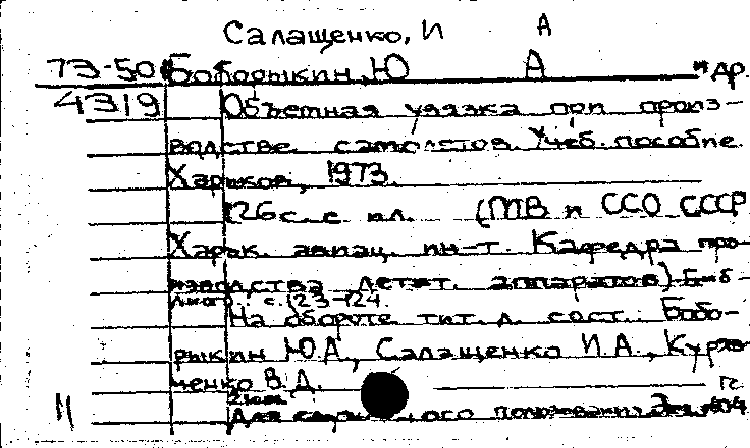 Салащенко, И А
73-50 Боборыкин, Ю А и др.
4319 Объемная увязка при произ-
водстве самолетов. Учеб. пособие.
Харьков, 1973.
126 с. с ил. (МВ и ССО СССР
Харьк. авиац. ин-т. Кафедра про-
изводства летат. аппаратов) Биб-
лиогр.: с. 123-124.
На обороте тит. л. сост.: Бобо-
рыкин Ю.А., Салащенко И.А.,
ченко В.Д.
11 2 экз. гс
Для служебного пользования